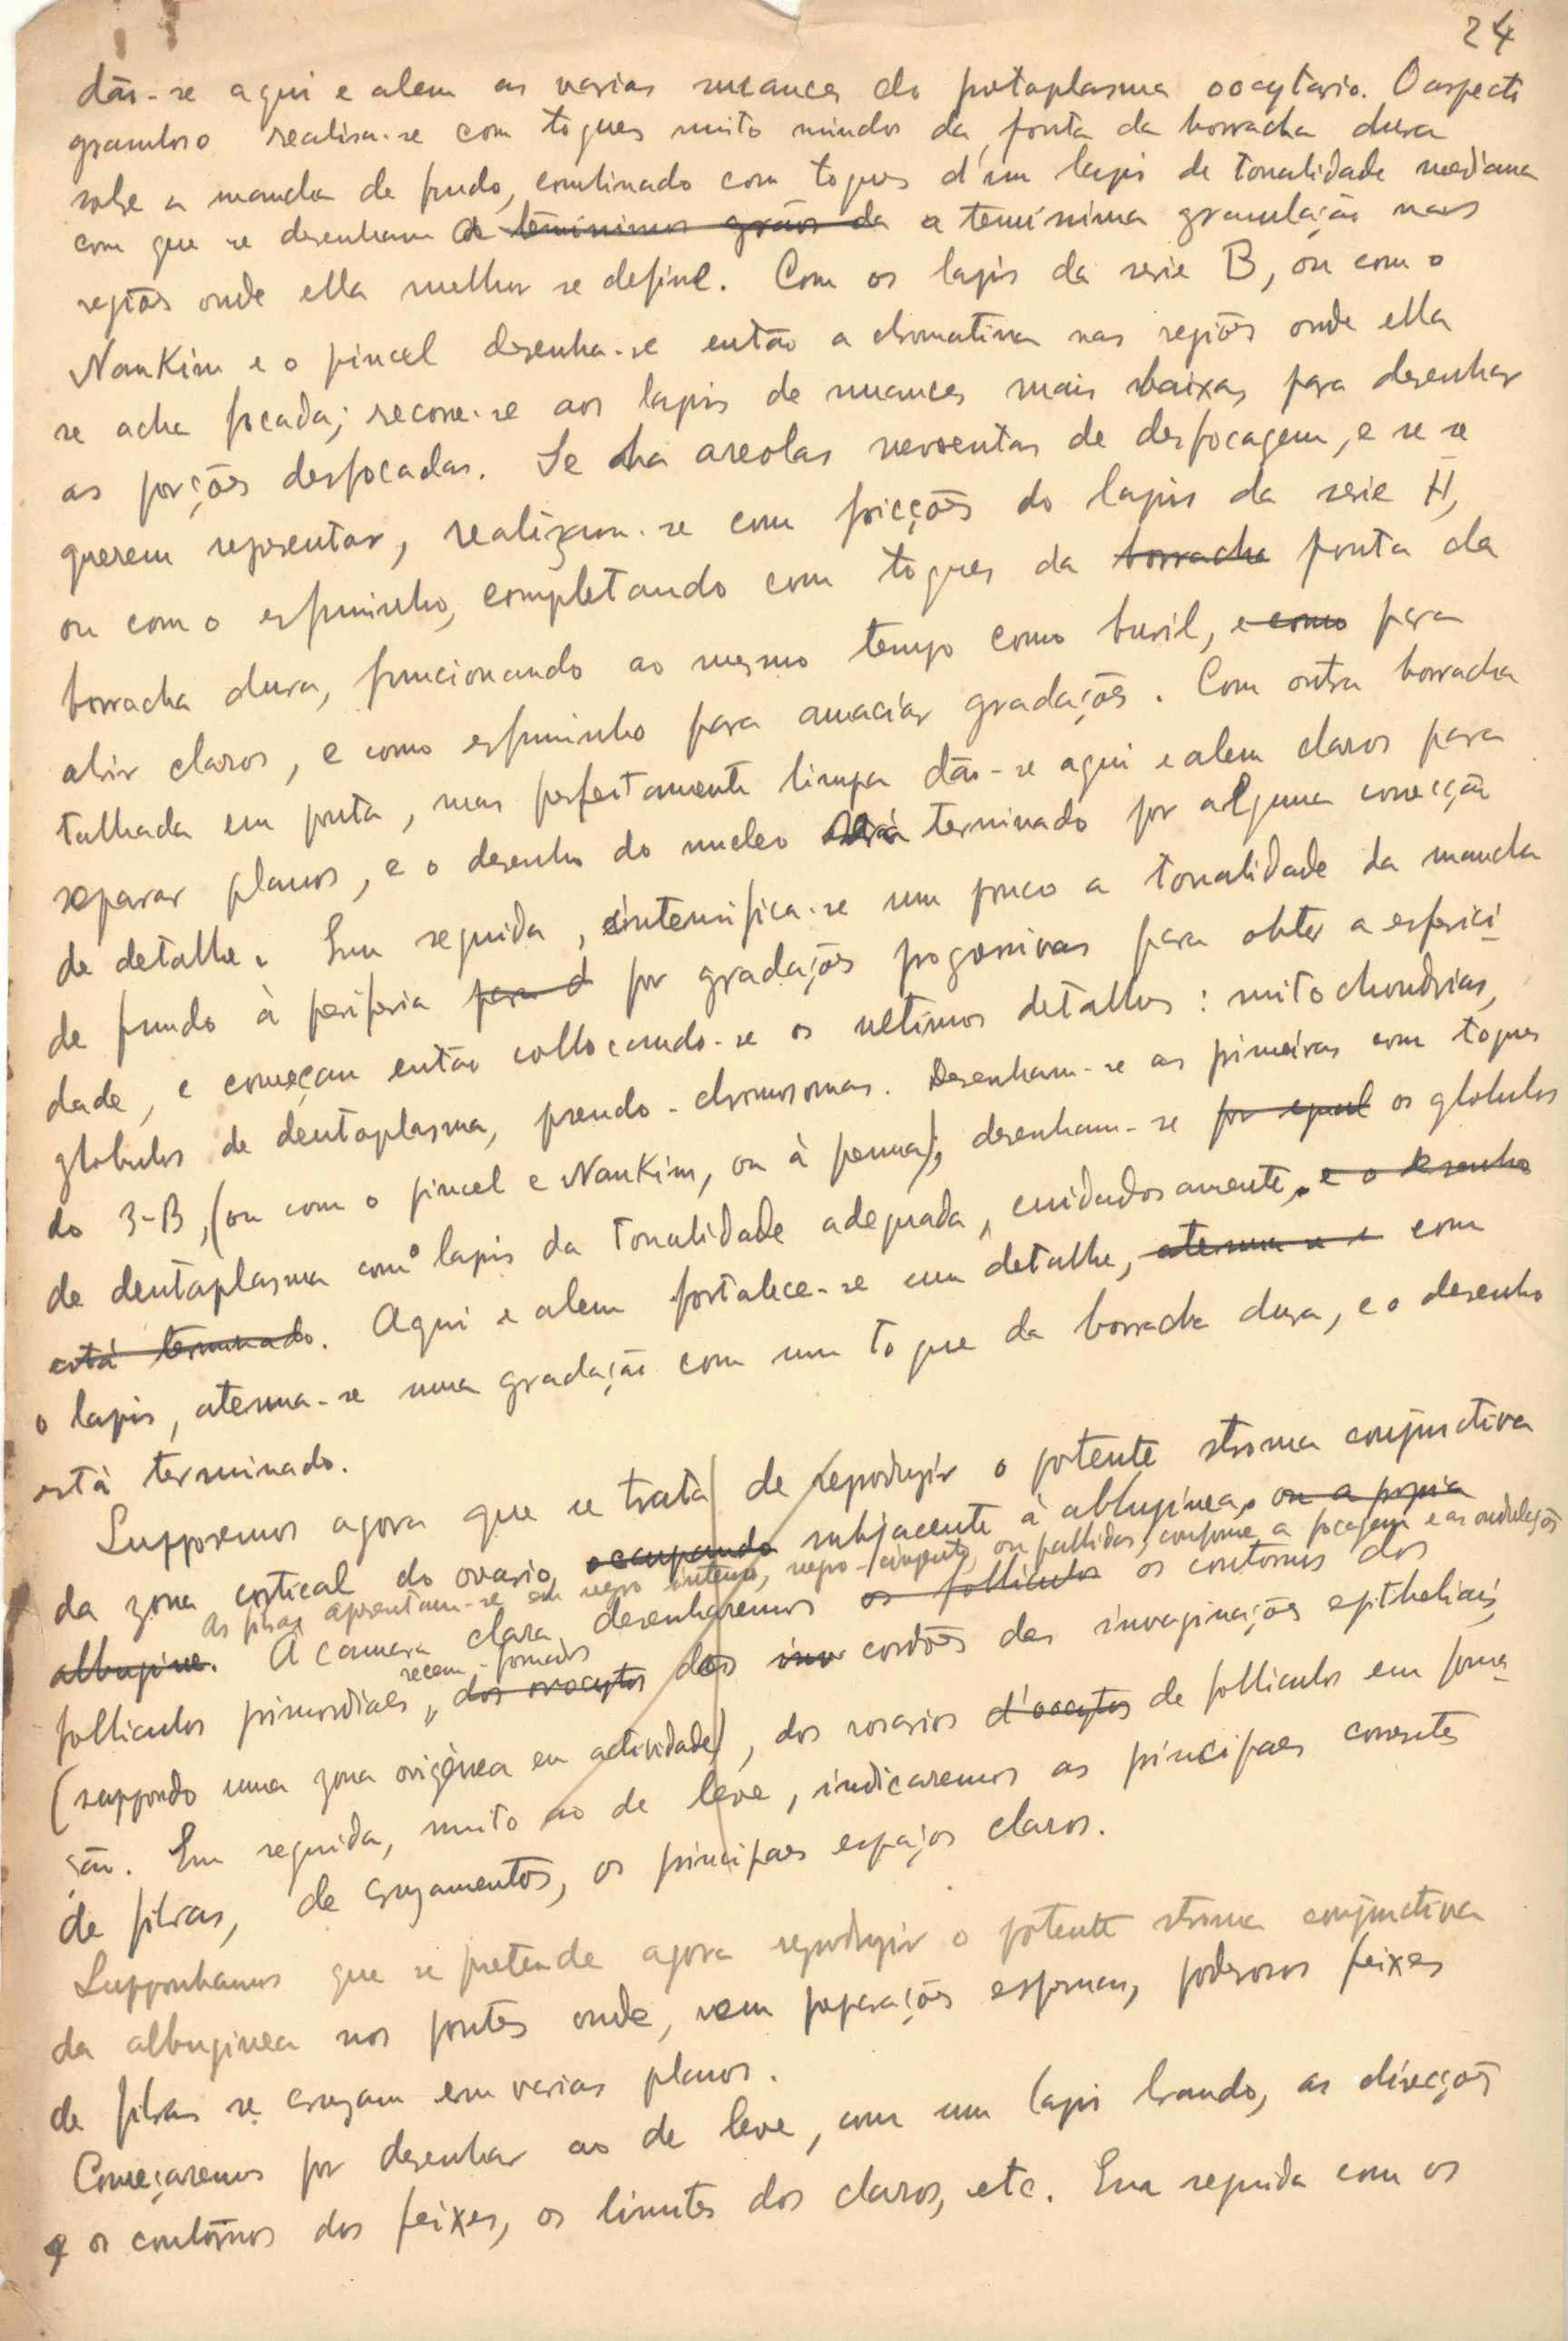 24
dão-se aqui e alem as varias nuances do protoplasma oocytario. O aspecto
granuloso realisa-se com toques muito miudos da ponta da borracha dura
sobre a mancha de fundo, combinado com toques d'um lapis de tonalidade mediana
com que se desenham os tenuissimos grãos da a tenuissima granulação nas
regiões onde ella melhor se define. Com os lapis da serie B, ou com o
NanKim e o pincel desenha-se então a chromatina nas regiões onde ella
se acha focada; recorre-se aos lapis de nuances mais baixas para desenhar
as porções desfocadas. Se ha areolas nevoentas de desfocagem, e se se
querem representar, realizam-se com fricções do lapis da serie H,
ou com o esfuminho, completando com toques da borracha ponta da
borracha dura, funcionando ao mesmo tempo como buril, e como para
abrir claros, e como esfuminho para amaciar gradações. Com outra borracha
talhada em ponta, mas perfeitamente limpa dão-se aqui e alem claros para
separar planos, e o desenho do nucleo será terminado por alguma correcção
de detalhe. Em seguida, intensifica-se um pouco a tonalidade da mancha
de fundo à periferia para d por gradações progressivas para obter a esferici-
dade, e começam então collocando-se os ultimos detalhes: mitochondrias,
globulos de deutoplasma, pseudo-chromosomas. Desenham-se as primeiras com toques
do 3-B, (ou com o pincel e NanKim, ou à penna); desenham-se por egual os globulos
de deutoplasma com o lapis da tonalidade adequada, cuidadosamente, e o desenho
está terminado. Aqui e alem fortalece-se um detalhe, atenua-se com
o lapis, atenua-se uma gradação com um toque da borracha dura, e o desenho
está terminado.
Supporemos agora que se trata de reproduzir o potente stroma conjunctiva
da zona cortical do ovario, occupando subjacente à albuginea, ou a propria
As fibras apresentam-se em negro intenso, negro-cinzento, ou pallidas, conforme a focagem e as ondulações
albuginea. À camara clara desenharemos os folliculos os contornos dos
recem-formados
folliculos primordiaes, dos ovocytos dos inv cordões das invaginações epitheliais,
(suppondo uma zona origénea em actividade), dos rosarios d'oocytos de folliculos em forma-
ção. Em seguida, muito ao de leve, indicaremos as principaes correntes
de fibras, de cruzamentos, os principaes espaços claros.
Supponhamos que se pretende agora reproduzir o potente stroma conjunctiva
da albuginea nos pontos onde, nem preparações espessas, poderosos feixes
de fibras se cruzam em varios planos.
Começaremos por desenhar ao de leve, com um lapis brando, as direcções
e os contornos dos feixes, os limites dos claros, etc. Em seguida com os